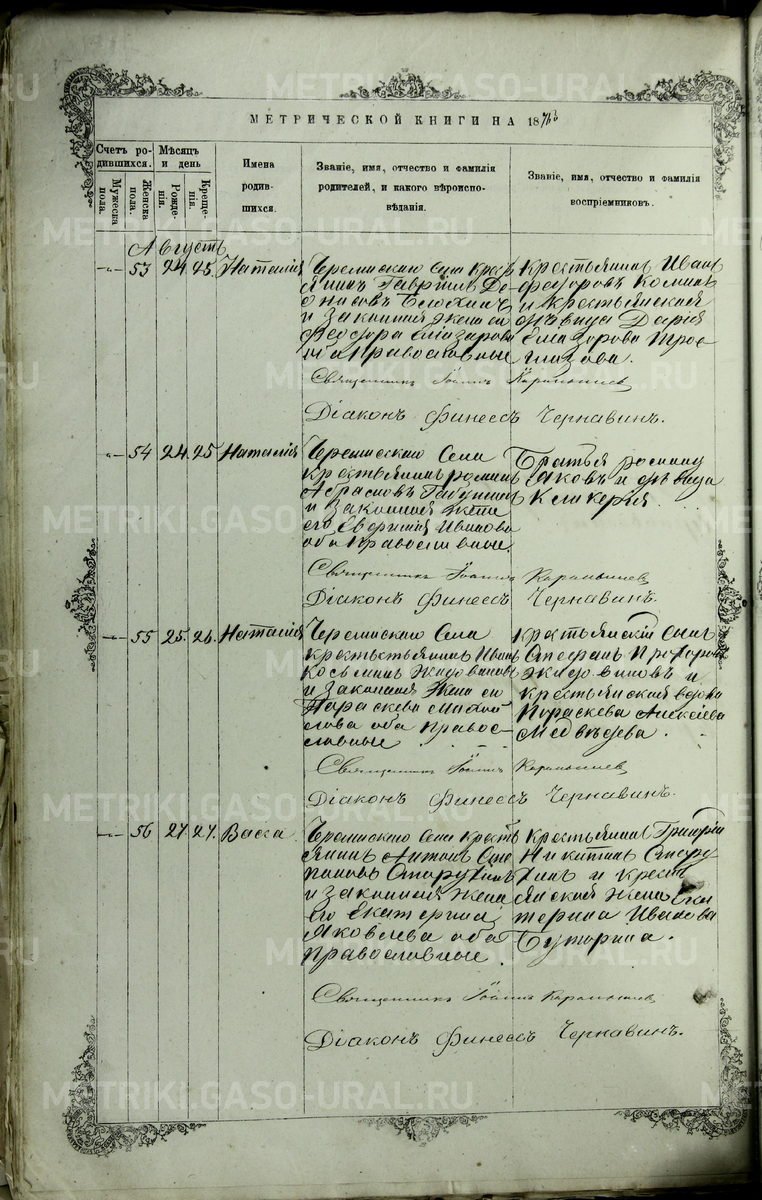 МЕТРИЧЕСКОЙ КНИГИ НА 187
Счетъ ро-
дившихся.
Мужеска
пола.
Женска
пола.
Мѣсяцъ
и день
Рожде-
нія.
Креще-
нія.
Имена
родив-
шихся.
Званіе, имя, отчество и фамилія
родителей, и какого вѣроиспо-
вѣданія.
Званіе, имя, отчество и фамилія
воспріемниковъ.
Августъ
53 24. 25. Наталія
Черемисскаго Села Крест
янинъ Гавріилъ
и Законная жена его
Феодора Елизарова
оба Православные
Крестьянинъ Иванъ
Федоровъ
и Крестьянская
дѣвица Дарія
Елизарова
Священникъ Іоаннъ Карамышев
Діаконъ Финеесъ Чернавинъ.
54 24. 25 Наталія
Черемисскаго Села
Крестьянинъ Романъ
Абрамовъ
и Законная Жена
его Евфимія Иванова
оба Православные.
Братья Романа
Яковъ и дѣвица
Гликерія
Священникъ Іоаннъ Карамышев
Діаконъ Финеесъ Чернавинъ.
55 25. 26. Наталія
Черемисскаго Села
Крестьянинъ Иванъ
Косьминъ Жидовиновъ
и Законная Жена его
Параскева
оба Право-
славные
Крестьянскій сынъ
Стефанъ Прохоровъ
Жидовиновъ и
Крестьянская вдова
Параскева Алексѣева
Медвѣдева.
Священникъ Іоаннъ Карамышев
Діаконъ Финеесъ Чернавинъ.
56 27. 27. Васса
Черемисскаго Села Кресть
янинъ Антонъ
Старухинъ
и Законная Жена
его Екатерина
Яковлева оба
Православные
Крестьянинъ Григрій
Никитинъ Стару
хинъ и Крест
янская Жена Ека
терина Иванова
Буторина.
Священникъ Іоаннъ Карамышев
Діаконъ Финеесъ Чернавинъ.
METRIKI.GASO-URAL.RU